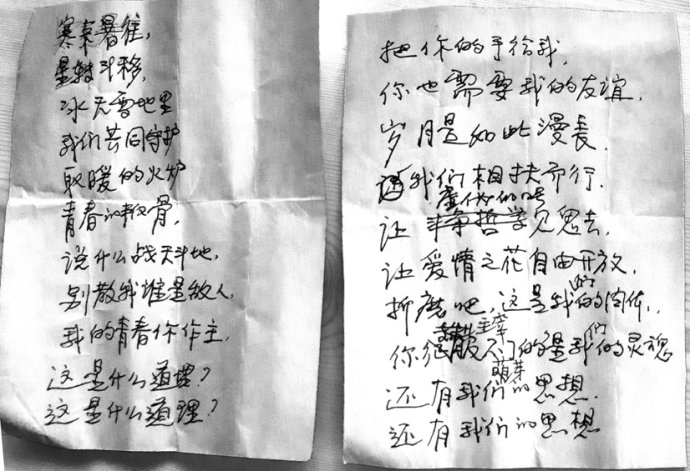 寒来暑往,
星转斗移,
冰天雪地里
我们共同守护
取暖的火炉
青春的软骨,
说什么战天斗地,
别教我谁是敌人,
我的青春你作主,
这是什么道理?
这是什么道理?
把你的手给我,
你也需要我的友谊,
岁月是如此漫长
让我们相扶而行.
虚伪的
让斗争哲学见鬼去,
让爱情之花自由开放,
折磨吧,这是我们的肉体,
主宰
你征服不了的是我们的灵魂
还有我们萌芽的思想.
还有我们的思想